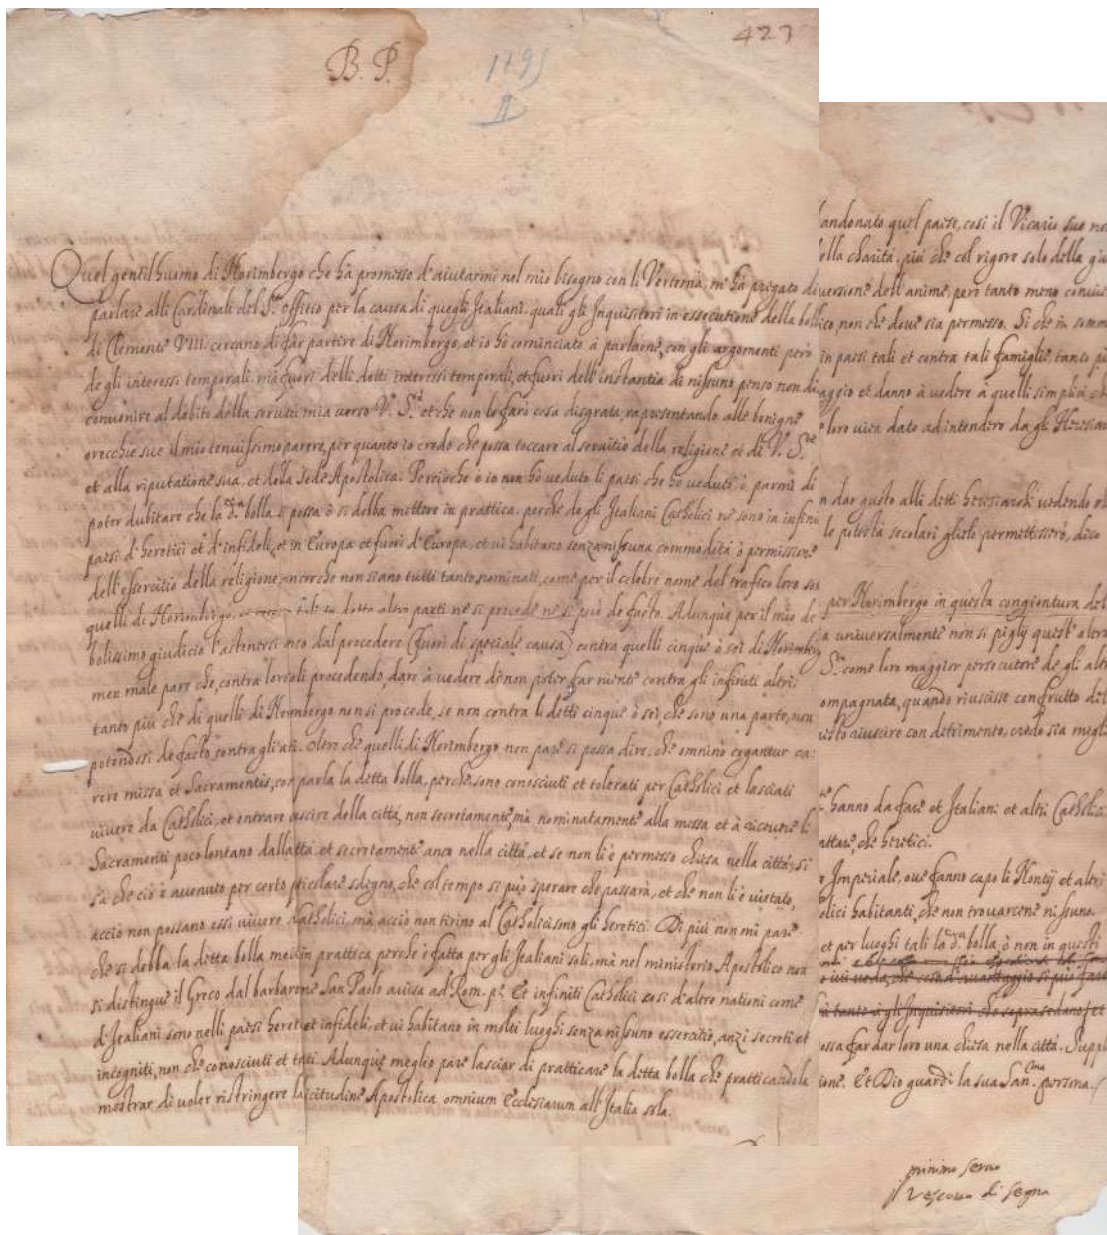 423
B. P.
1795
II
Quel gentilhuomo di Norimbergo che hà promesso d'aiutarmi nel mio bisogno con li Vertema, m'hà pregato di
parlare alli Cardinali del S.to offitio per la causa di quegli Italiani, quali gli Inquisitori in essecutione della bolla
di Clemente VIII. cercano di far partire di Norimbergo, et io hò cominciato à parlarne, con gli argomenti però
de gli interessi temporali. mà fuori delli detti interessi temporali, et fuori dell'instantia di nissuno penso non di
convenire al debito della servitù mia verso V. S.tà et che non le farò cosa disgrata, rapresentando alle benigne
orecchie sue il mio tenuissimo parere, per quanto io credo che possa toccare al servitio della religione et di V. S.tà
et alla riputatione sua, et della sede Apostolica. Percioche ò io non hò veduto li paesi che hò veduti, ò parmi di
poter dubitare che la d.a bolla si possa ò si debba mettere in prattica. perche de gli Italiani Catholici ne sono in infiniti
paesi d'heretici et d'infideli, et in Europa et fuori d'Europa, et vi habitano senza nissuna commodità ò permissione
dell'essercitio della religione, ancorche non siano tutti tanto nominati, come per il celebre nome del trafico loro son
quelli di Norimbergo. dette altre parti ne si procede ne si può de facto. Adunque per il mio de
bolissimo giudicio l'astenersi anco dal procedere (fuori di speciale causa) contra quelli cinque ò sei di Norimberg
men male pare che, contra lor soli procedendo, dare à vedere de non poter far niente contra gli infiniti altri:
tanto più che di quelli di Norimbergo non si procede, se non contra li detti cinque ò sei, che sono una parte, non
potendosi de facto contra gli Oltre che quelli di Norimbergo non pare si possa dire, che omnino cogantur ca:
rere missa et Sacramentis, con parla la detta bolla, perche sono conosciuti et tolerati per Catholici et lasciati
vivere da Catholici, et entrare uscire della città, non secretamente, mà nominatamente alla messa et à ricevere li
Sacramenti poco lontano dalla et secretamente anco nella città, et se non li è permesso chiesa nella città, si
sà che ciò è avenuto per certo sdegno, che col tempo si può sperare che passarà, et che non li è vietato,
acciò non possano essi vivere Catholici, mà acciò non tirino al Catholicismo gli heretici. Di più non mi pare
che si debba la detta bolla in prattica perche è fatta per gli Italiani soli, mà nel ministerio Apostolico non
si distingue il Greco dal barbaro San Paolo avisa ad Rom. p.o Et infiniti Catholici così d'altre nationi come
d'Italiani sono nelli paesi heret et infideli, et vi habitano in molti luoghi senza nissuno essercitio, anzi secreti et
incogniti, non che conosciuti et Adunque meglio pare lasciar di practicare la detta bolla che pratticandola
mostrar di voler ristringere la Apostolica omnium Ecclesiarum all'Italia sola.
andonato quel paese, così il Vicario suo
della charità, più che col rigore solo della
versione dell'anime, però tanto meno
non che dove sia permesso. Si che in somm
in paesi tali et contra tali famiglie tanto
et danno à vedere à quelli simplici
loro vien dato ad intendere da gli
dar gusto alli detti heresiarchi vedendo
le potestà secolari glielo permettesero, dico
per Norimbergo in questa congiontura
universalmente non si pigli quest'altro
S.tà come loro maggior persecutore de gli altri
ompagnata, quando riuscisse con frutto
riuscire con detrimento, credo sia
hanno da fare et Italiani et altri
che heretici.
Imperiale, ove fanno capo li Nontij et altri
habitanti, che non trovarcene nissuno.
et per luoghi tali la d.a bolla, ò non in questi
à gli Inquisitori che soprasedano, et
ossa far dar loro una chiesa nella città.
Et Dio guardi la sua San.ma persona.
minimo servo
il Vescovo di Segna